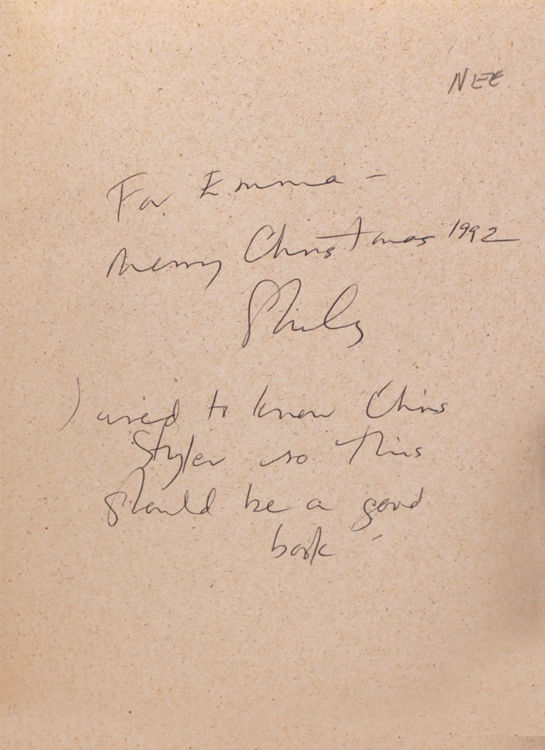 NEE
For Emma –
Merry Christmas 1992
I used to know Chris
Styler so this
should be a good
book